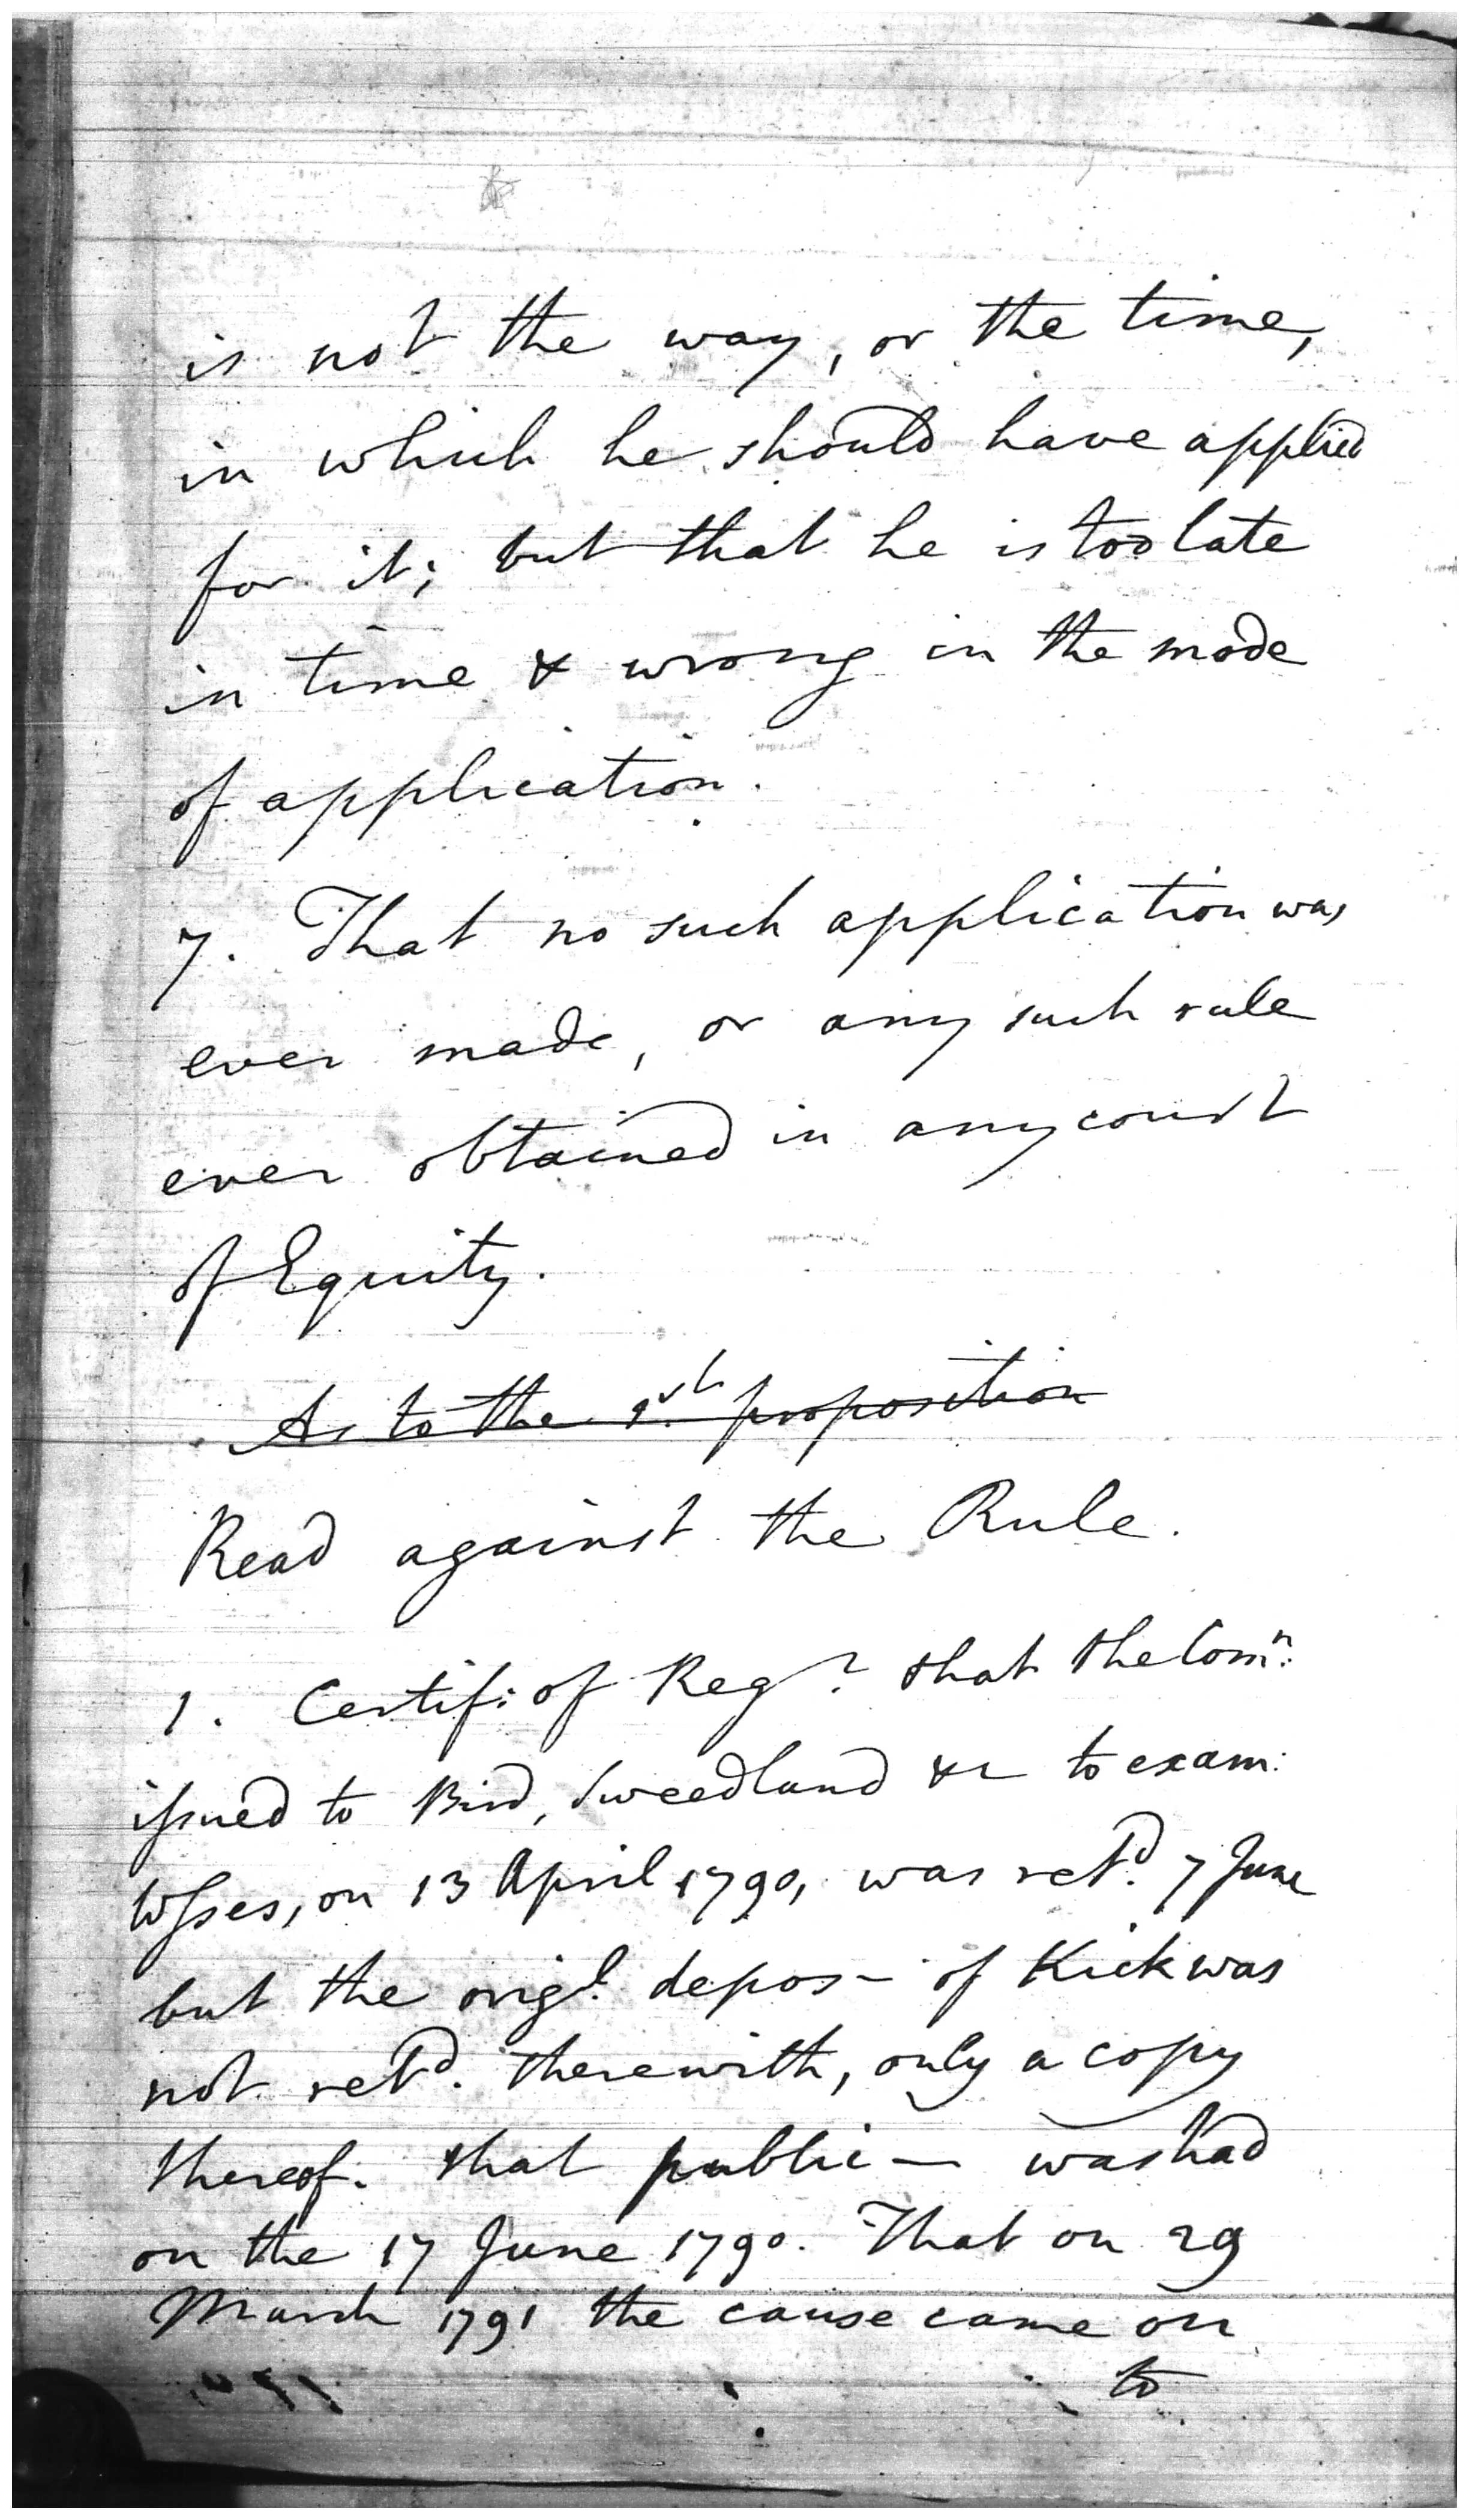 is not the way, or the time,
in which he should have applied
for it; but that he is too late
in time & wrong in the mode
of application.
7. That no such application was
ever made, or any such rule
ever obtained in any court
of Equity.
As to the 1st. proposition
Read against the Rule.
1. Certif: of Regr. that the Comn:
issued to Bird, Sweedland &c to exam:
Wsses, on 13 April 1790, was retd. 7 June
but the origl. depos- of Kick was
not retd. therewith, only a copy
thereof. that public- was had
on the 17 June 1790. That on 29
March 1791 the cause came on
to